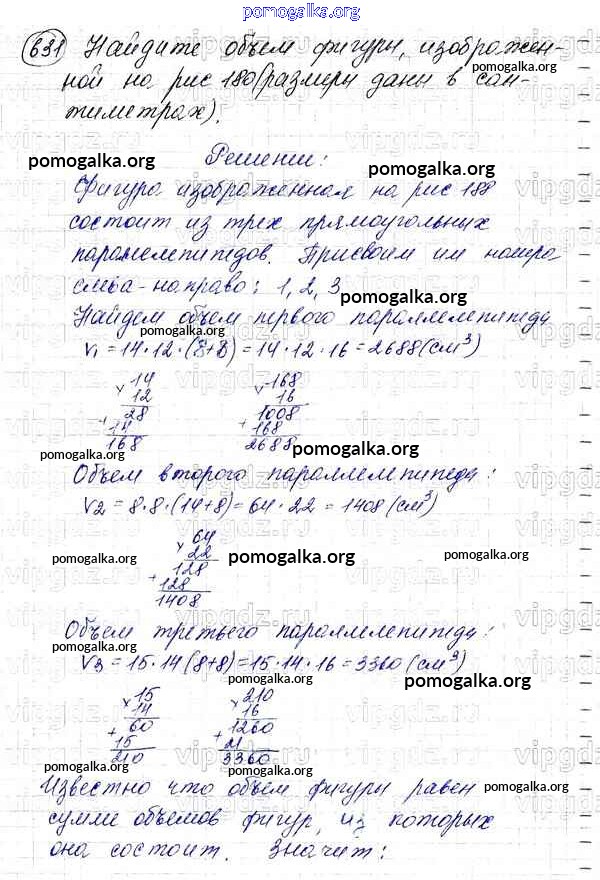 pomogalka.org
631 Найдите объем фигуры, изображен-
ной на рис 180 (размеры даны в сан-
тиметрах).
Решении:
pomogalka.org pomogalka.org
Фигура изображенная на рис 188
состоит из трех прямоугольных
параллелепипедов. Присвоим им номера
слева-направо: 1, 2, 3
pomogalka.org
Найдем объем первого параллелепипеда
pomogalka.org
V1 = 14 · 12 · (8+8) = 14 · 12 · 16 = 2688 (см³)
14 168
12 16
28 1008
14 168
168 2688
pomogalka.org pomogalka.org
pomogalka.org pomogalka.org
Объем второго параллелепипеда:
V2 = 8 · 8 · (14+8) = 64 · 22 = 1408 (см³)
64
22
128
128
1408
pomogalka.org pomogalka.org pomogalka.org
pomogalka.org
Объем третьего параллелепипеда:
V3 = 15 · 14 (8+8) = 15 · 14 · 16 = 3360 (см³)
pomogalka.org pomogalka.org
15 210
14 16
60 1260
15 21
210 3360
pomogalka.org pomogalka.org
pomogalka.org
Известно что объем фигуры равен
сумме объемов фигур, из которых
она состоит. Значит: